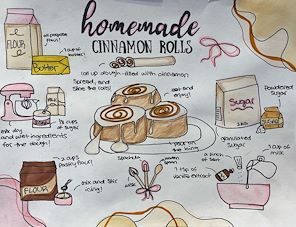 homemade
CINNAMON ROLLS
all purpose
flour!
FLOUR
1 cup of
butter!
Butter
roll up dough-filled with cinnamon
Spread, and
slice the rolls!
eat and
enjoy!
Powdered
Sugar
Sugar
granulated
Sugar
mix dry
and wet ingredients
for the dough!
cups
of sugar
pour on
the icing
2 cups
pastry flour!
FLOUR
mix and stir
icing!
Spatula
whisk
wooden
spoon
a pinch
of salt
1 tsp of
vanilla extract
1 cup of milk